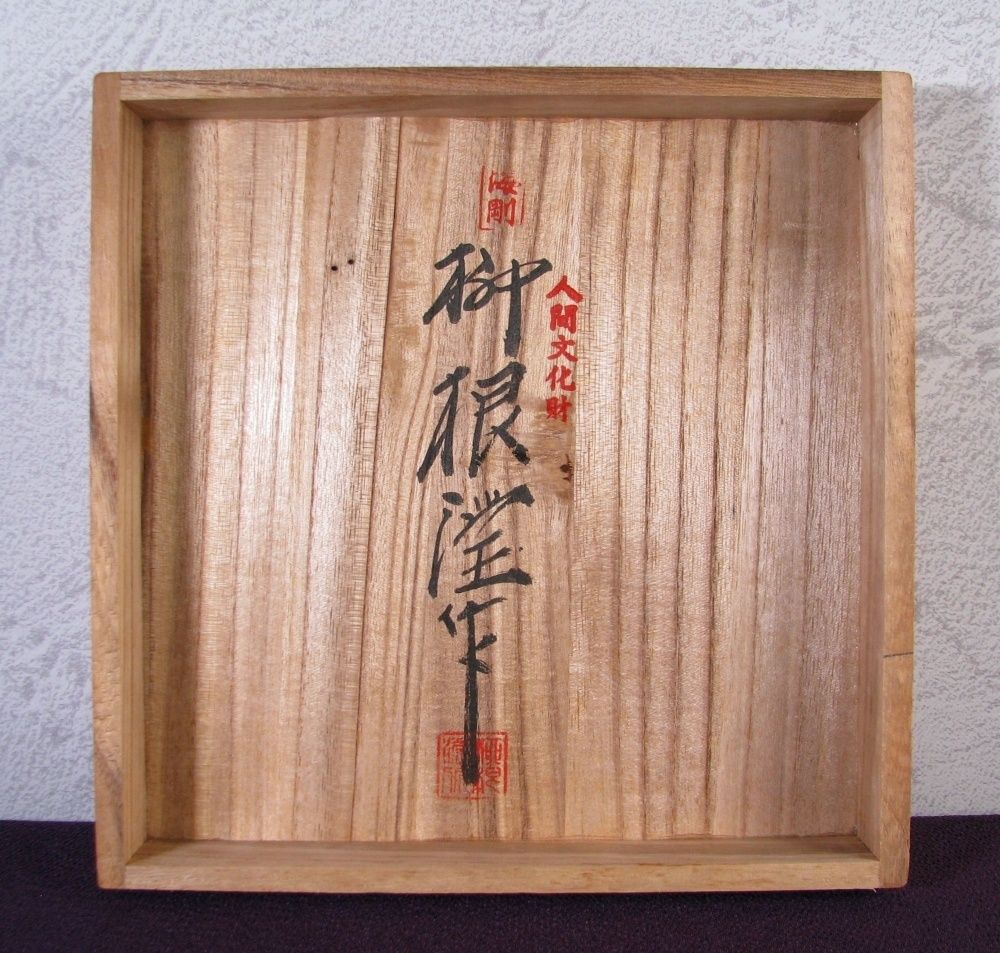 海剛
人間文化財
柳根瀅作